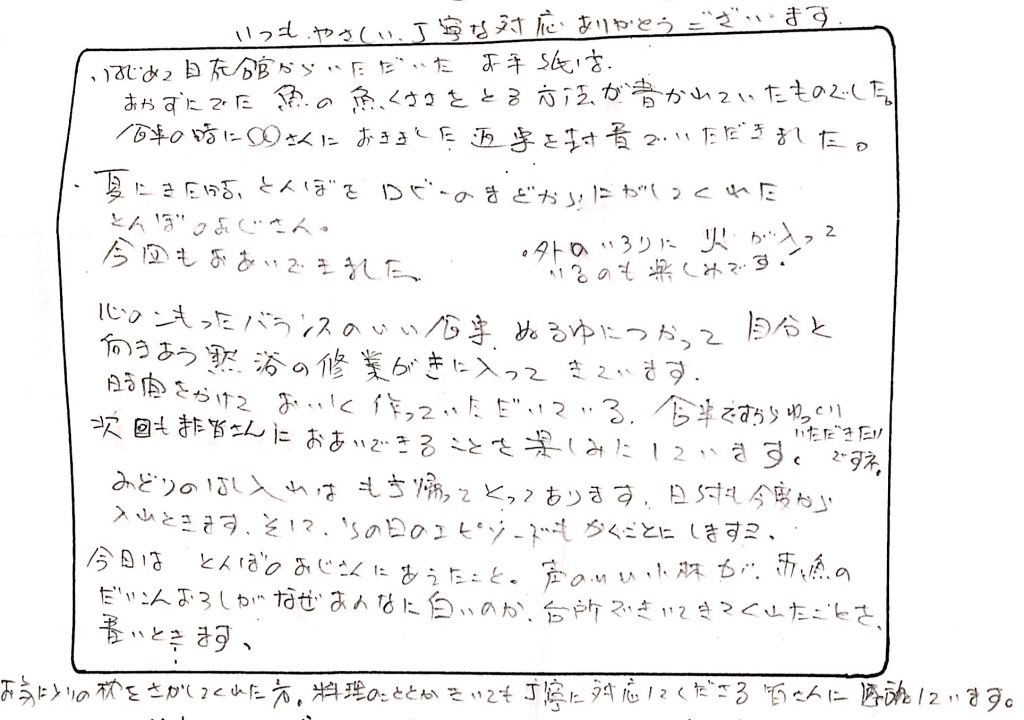 いつも、やさしい、丁寧な対応ありがとうございます。
・はじめて自在館からいただいたお手紙は、
おやずにでた魚の魚くささをとる方法が書かれていたものでした。
食事の時に○○さんにおききした返事を封書でいただきました。
・夏にきた時、とんぼをロビーのまどからにがしてくれた
とんぼのおじさん。
今回もおあいできました。
・外のいろりに火が入って
いるのも楽しみです。
心のこもったバランスのいい食事、ぬる湯につかって自分と
向きあう黙浴の修業がきに入ってきています。
時間をかけておいしく作っていただいている、食事ですからゆっくり
いただきたい
ですネ。
次回もまた皆さんにおあいできることを楽しみにしています。
みどりのはし入れはもち帰ってとってあります。日付も今度から
入れときます、そして、その日のエピソードもかくことにしますネ、
今日はとんぼのおじさんにあえたこと。声のいい小林が、赤魚の
だいこんおろしがなぜあんなに白いのか、台所できいてきてくれたことを、
書いときます、
お気に入りの枕をさがしてくれた方。料理のこととかきいても丁寧に対応してくださる皆さんに感謝しています。